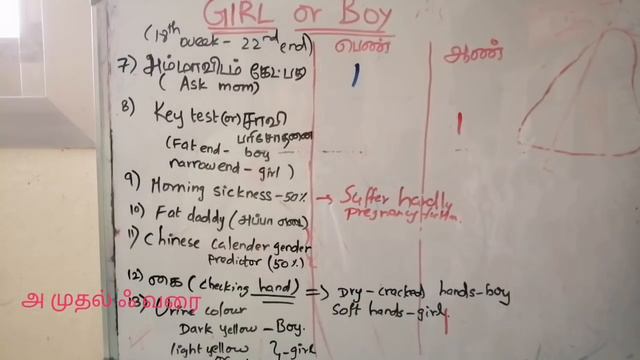 GIRL or BOY
(18th week - 22nd end)
பெண்
ஆண்
7) அம்மாவிடம் கேட்பது
(Ask mom)
8) Key test (or) சாவி
பரிசோதனை
(Fat end - boy
narrow end - girl)
9) Morning sickness - 50% → Suffer hardly
pregnancy
10) Fat daddy (அப்பா
11) Chinese calender gender
predictor (50%)
12) கை (checking hand) => Dry - cracked hands - boy
Soft hands - girl
அ முதல் ஃ வரை
13) Urine colour
Dark yellow - Boy.
light yellow } - girl